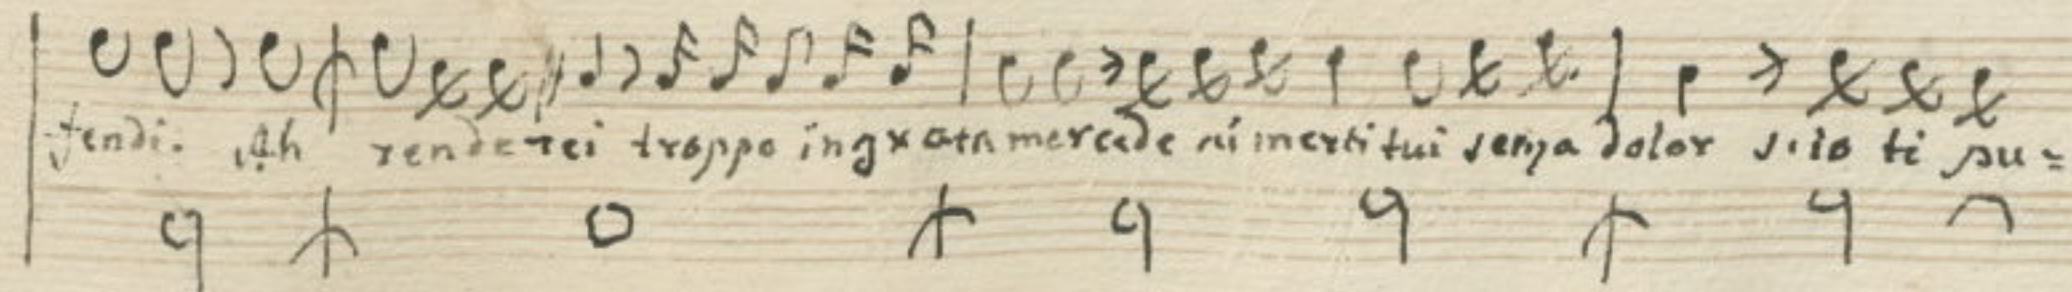 fendi. Ah renderei troppo ingrata mercede ai merti tui senza dolor s'io ti pu=